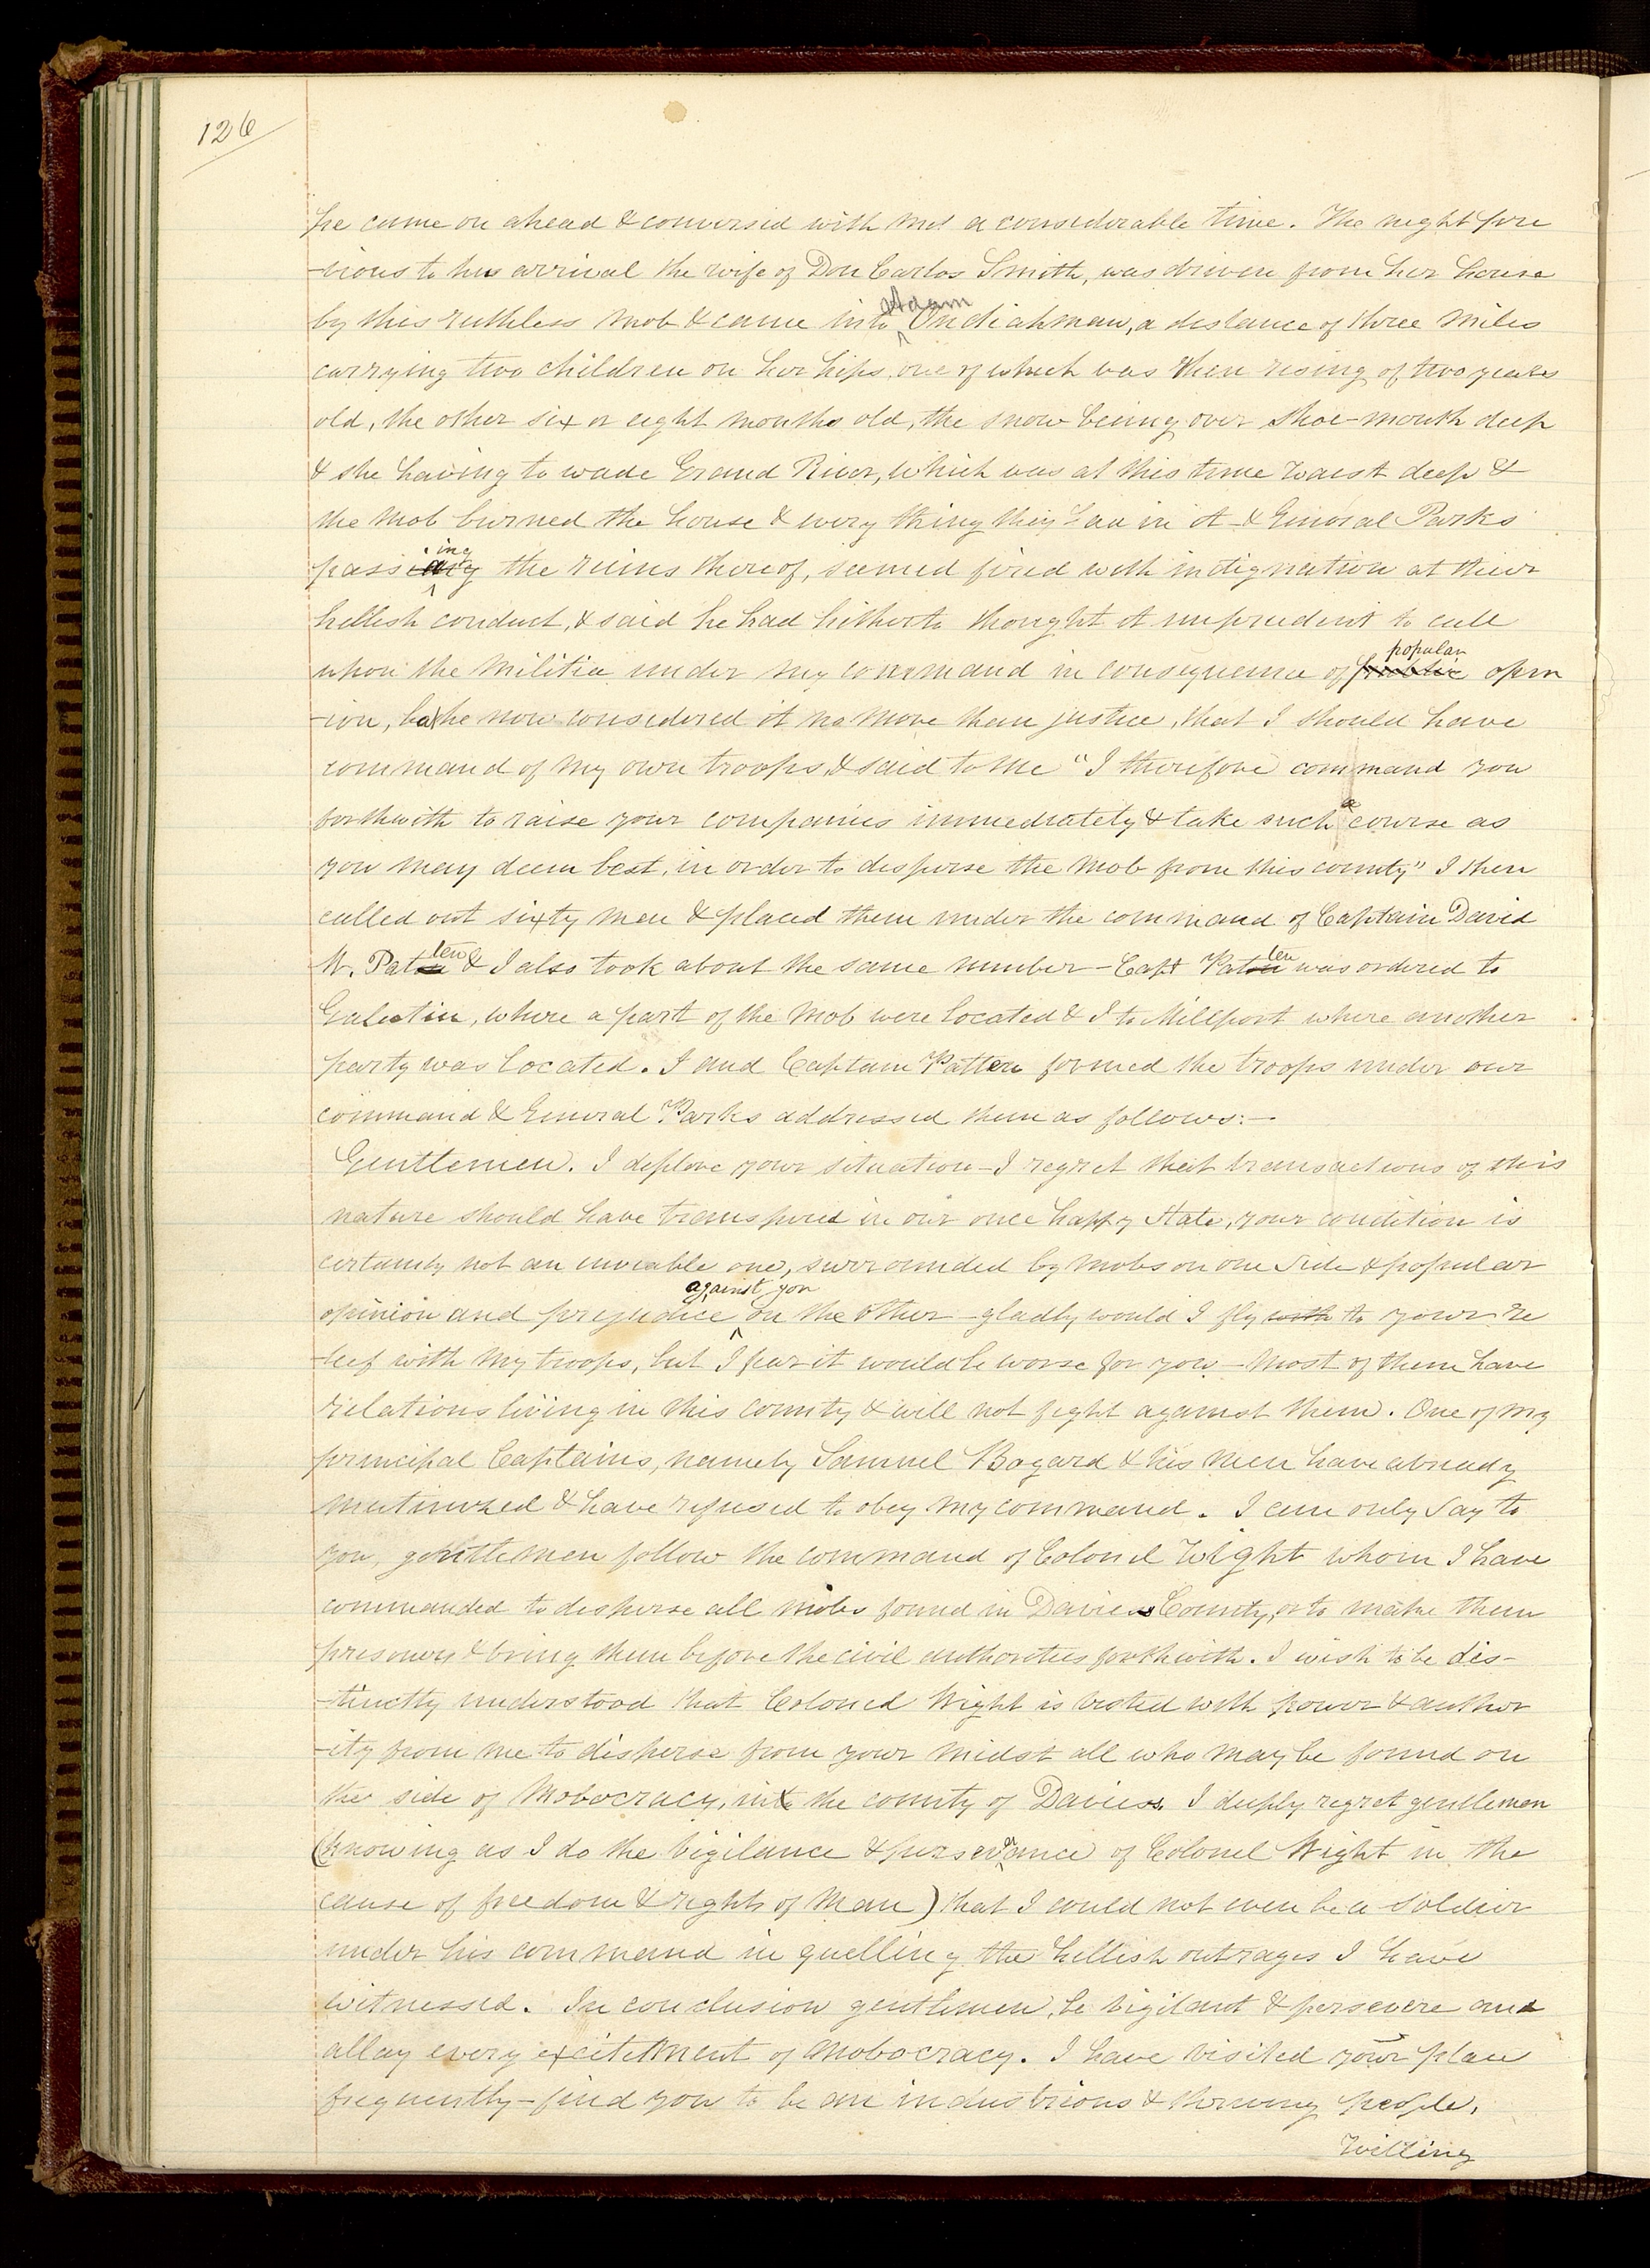 126
he came on ahead & conversed with me a considerable time. The night pre
-vious to his arrival the wife of Don Carlos Smith, was driven from her house
by this ruthless mob & came into Adam Ondiahman, a distance of three miles
carrying two children on her hips, one of which was then rising of two years
old, the other six or eight months old, the snow being over shoe-mouth deep
& she having to wade Grand River, which was at this time waist deep &
the mob burned the house & every thing they had in it - & General Parks
passing the ruins thereof, seemed fired with indignation at their
hellish conduct, & said he had hitherto thought it imprudent to call
upon the Militia under my command in consequence of public popular opin
-ion, but he now considered it no more than justice, that I should have
command of my own troops, & said to me "I therefore command you
forthwith to raise your companies immediately & take such a course as
you may deem best, in order to disperse the mob from this county" I then
called out sixty men & placed them under the command of Captain David
W. Patten & I also took about the same number - Capt Patten was ordered to
Galeatin, where a part of the mob were located & I to Millport where another
party was located. I and Captain Patten formed the troops under our
command & General Parks addressed them as follows:-
Gentlemen. I deplore your situation - I regret that transactions of this
nature should have transpired in our once happy State, your condition is
certainly not an enviable one, surrounded by mobs on one side & popular
opinion and prejudice against you on the other - gladly would I fly with to your re
-lief with my troops, but I fear it would be worse for you - most of them have
relations living in this county & will not fight against them. One of my
principal Captains, namely Samuel Bogard & his men have already
mutinized & have refused to obey my command. I can only say to
you, gentlemen follow the command of Colonel Wight whom I have
commanded to disperse all mobs found in Daviess County, or to make them
prisoners & bring them before the civil authorities forthwith. I wish to be dis-
-tinctly understood that Colonel Wight is vested with power & author
-ity from me to disperse from your midst all who may be found on
the side of mobocracy, in the county of Daviess. I deeply regret gentlemen
(knowing as I do the vigilance & perseverance of Colonel Wight in the
cause of freedom & rights of man) that I could not even be a soldier
under his command in quelling the hellish outrages I have
witnessed. In conclusion gentlemen, be vigilant & persevere and
allay every excitement of mobocracy. I have visited your place
frequently - find you to be an industrious & thriving people,
Willing